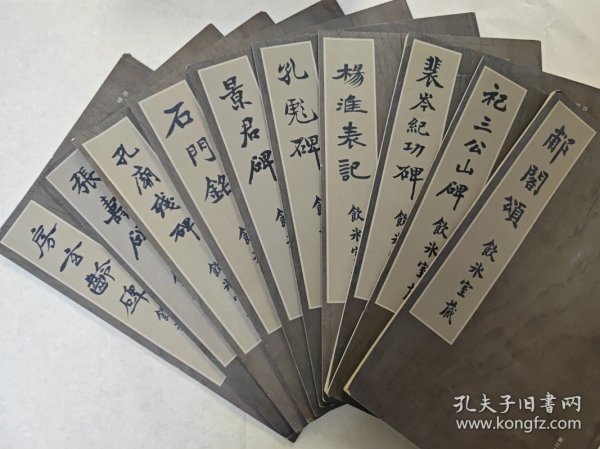 郙閣頌 飲冰室藏
祀三公山碑 飲冰室
裴岑紀功碑 飲冰
楊淮表記 飲冰室
孔彪碑 飲
景君碑 飲冰
石門銘 飲冰室
孔廟殘碑
張壽碑
房玄齡碑 飲
孔夫子旧书网
www.kongfz.com